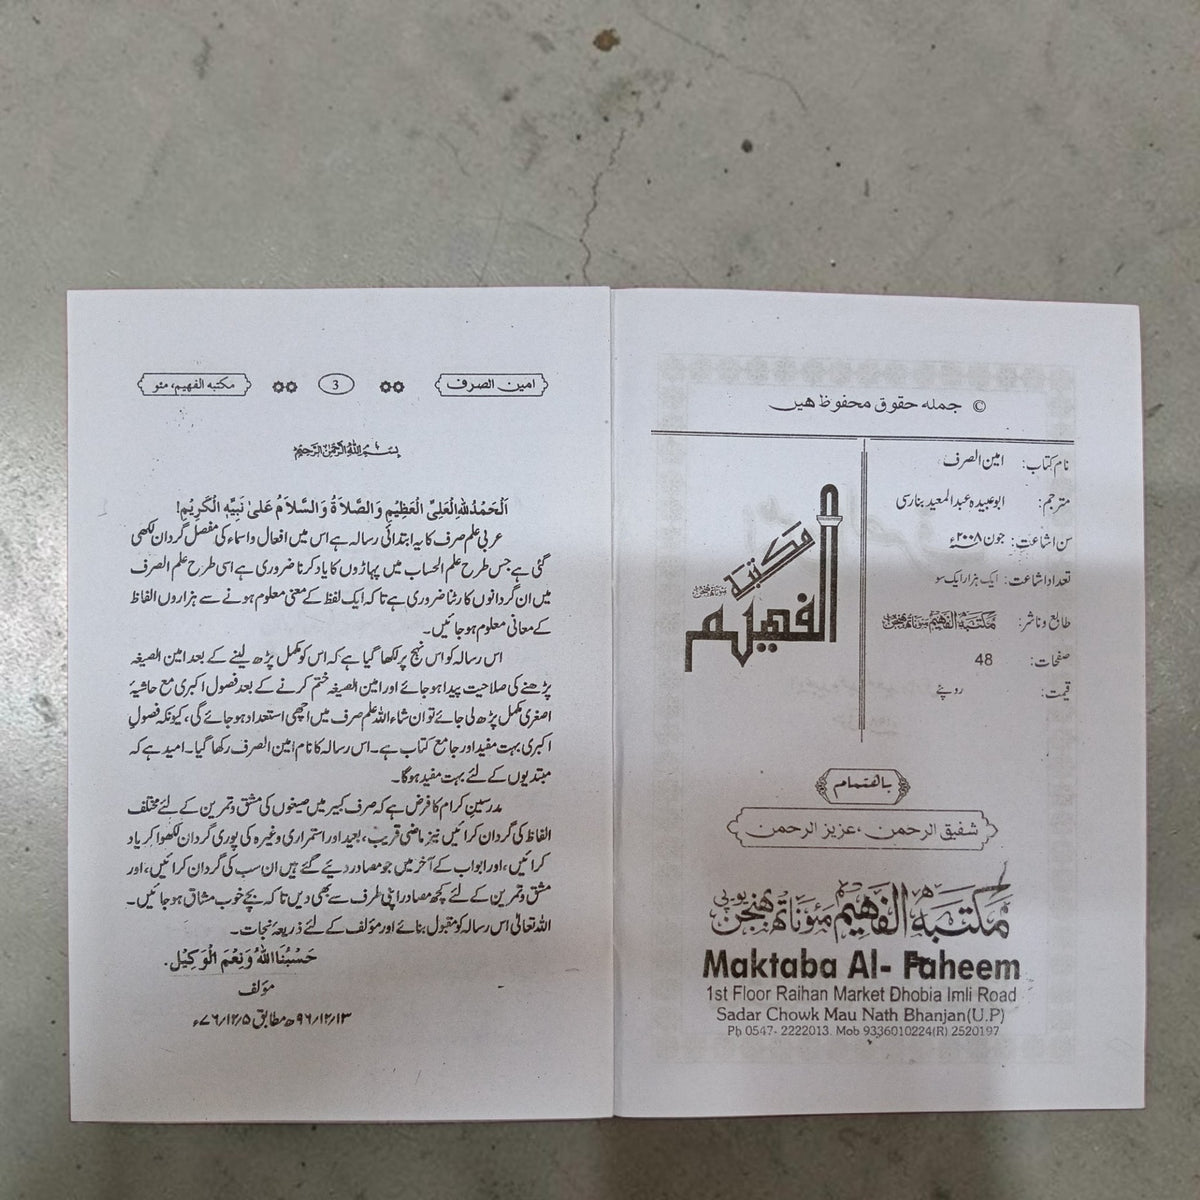 © جمله حقوق محفوظ هیں
نام کتاب: امین الصرف
مترجم: ابوعبیدہ عبدالمعید بنارسی
سن اشاعت: جون ۲۰۰۸ء
تعداد اشاعت: ایک ہزار ایک سو
طابع و ناشر: مکتبۃ الفہیم مئوناتھ بھنجن
صفحات: 48
قیمت: روپئے
مکتبۃ
الفہیم
مئوناتھ بھنجن
باہتمام
شفیق الرحمن، عزیز الرحمن
مکتبۃ الفہیم مئوناتھ بھنجن یوپی
Maktaba Al- Faheem
1st Floor Raihan Market Dhobia Imli Road
Sadar Chowk Mau Nath Bhanjan(U.P)
Ph 0547- 2222013. Mob 9336010224(R) 2520197
امین الصرف 3 مکتبه الفهیم، مئو
بسم الله الرحمن الرحیم
اَلْحَمْدُ لِلّٰهِ الْعَلِیِّ الْعَظِیْمِ وَالصَّلَاةُ وَالسَّلَامُ عَلیٰ نَبِیِّهِ الْکَرِیْمِ!
عربی علم صرف کا یہ ابتدائی رسالہ ہے اس میں افعال و اسماء کی مفصل گردان لکھی
گئی ہے جس طرح علم الحساب میں پہاڑوں کا یاد کرنا ضروری ہے اسی طرح علم الصرف
میں ان گردانوں کا رٹنا ضروری ہے تا کہ ایک لفظ کے معنی معلوم ہونے سے ہزاروں الفاظ
کے معانی معلوم ہو جائیں۔
اس رسالہ کو اس نہج پر لکھا گیا ہے کہ اس کو مکمل پڑھ لینے کے بعد امین الصیغہ
پڑھنے کی صلاحیت پیدا ہو جائے اور امین الصیغہ ختم کرنے کے بعد فصول اکبری مع حاشیۂ
اصغری مکمل پڑھ لی جائے تو ان شاء اللہ علم صرف میں اچھی استعداد ہو جائے گی، کیونکہ فصولِ
اکبری بہت مفید اور جامع کتاب ہے۔ اس رسالہ کا نام امین الصرف رکھا گیا۔ امید ہے کہ
مبتدیوں کے لئے بہت مفید ہوگا۔
مدرسینِ کرام کا فرض ہے کہ صرف کبیر میں صیغوں کی مشق و تمرین کے لئے مختلف
الفاظ کی گردان کرائیں نیز ماضی قریب، بعید اور استمراری وغیرہ کی پوری گردان لکھوا کر یاد
کرائیں، اور ابواب کے آخر میں جو مصادر دیئے گئے ہیں ان سب کی گردان کرائیں، اور
مشق و تمرین کے لئے کچھ مصادر اپنی طرف سے بھی دیں تا کہ بچے خوب مشاق ہو جائیں۔
اللہ تعالیٰ اس رسالہ کو مقبول بنائے اور مؤلف کے لئے ذریعۂ نجات۔
حَسْبُنَا اللّٰهُ وَنِعْمَ الْوَکِیْل.
مؤلف
۹۶/۱۲/۱۳ھ مطابق ۷۶/۱۲/۵ء